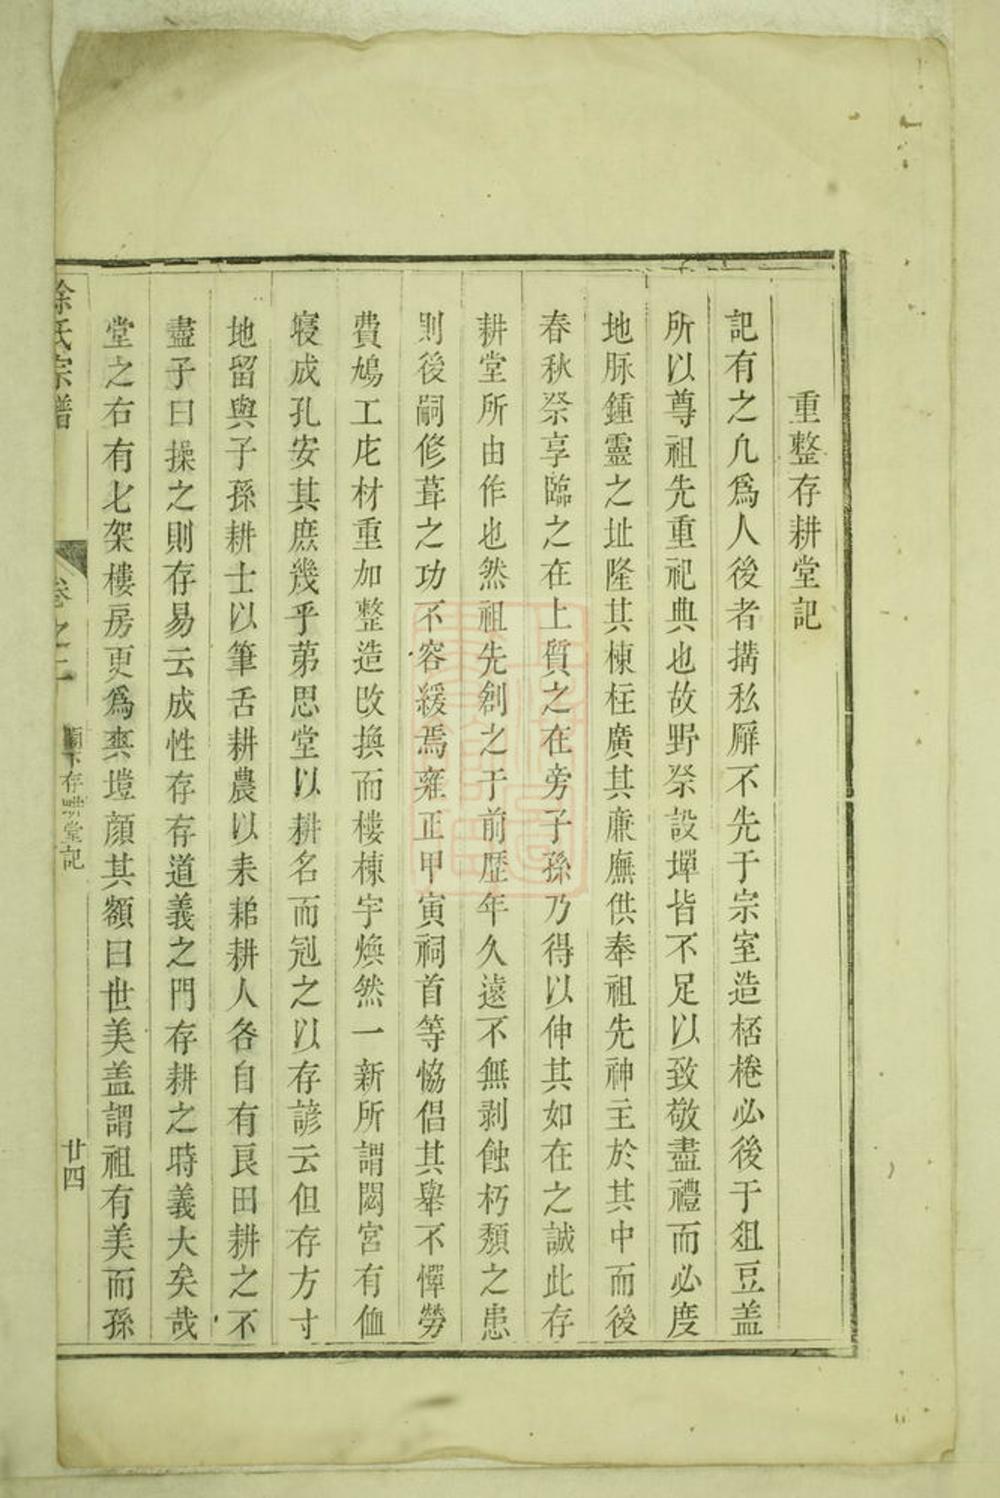 重整存耕堂記
記有之凢爲人後者搆私廨不先于宗室造桮棬必後于爼豆盖
所以尊祖先重祀典也故野祭設墠皆不足以致敬盡禮而必度
地脉鍾靈之址隆其棟柱廣其亷廡供奉祖先神主於其中而後
春秋祭享臨之在上質之在旁子孫乃得以伸其如在之誠此存
耕堂所由作也然祖先創之于前歴年久遠不無剥蝕朽頽之患
則後嗣修葺之功不容緩焉雍正甲寅祠首等恊倡其舉不憚勞
費鳩工庀材重加整造改換而樓棟宇煥然一新所謂閟宮有侐
寢成孔安其庶幾乎苐思堂以耕名而冠之以存諺云但存方寸
地留與子孫耕士以筆舌耕農以耒耜耕人各自有良田耕之不
盡子曰操之則存易云成性存存道義之門存耕之時義大矣哉
堂之右有七架樓房更爲爽塏顔其額曰世美盖謂祖有美而孫
徐氏宗譜
卷之二
存耕堂記
廿四